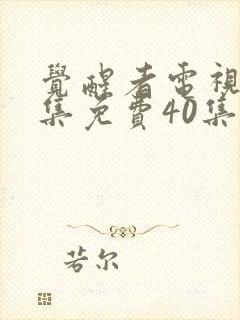 覺醒者電視
集免費40集
若尔